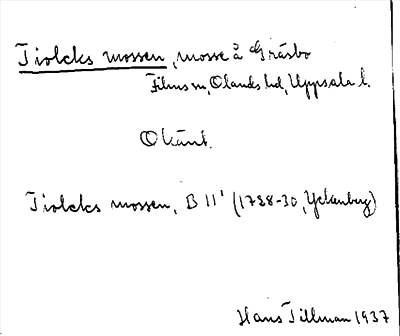 Tiolcks mossen, mosse å Gräsbo
Films sn, Olands hd, Uppsala l.
Okänt.
Tiolcks mossen, B 11¹ (1728-30, Yckenberg)
Hans Tillman 1937